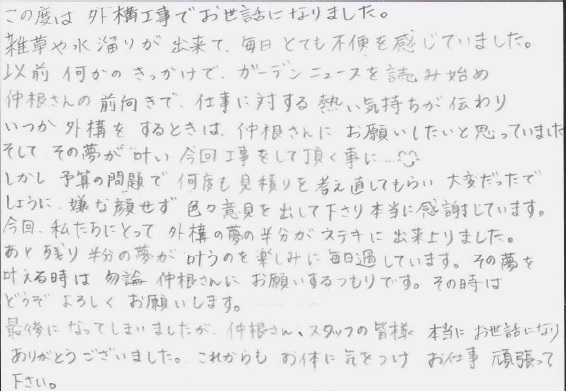 この度は 外構工事でお世話になりました。
雑草や水溜りが出来て、毎日とても不便を感じていました。
以前何かのきっかけで、ガーデンニュースを読み始め
仲根さんの前向きで、仕事に対する熱い気持ちが伝わり
いつか 外構を するときは、仲根さんに お願いしたいと思っていました
そして その夢が叶い 今回工事をして頂く事に…
しかし 予算の問題で 何度も見積りを考え直してもらい、大変だったで
しょうに、嫌な顔せず 色々意見を出して下さり本当に感謝しています。
今回、私たちにとって 外構の夢の半分がステキに出来上りました。
あと残り半分の夢が叶うのを楽しみに毎日過しています。その夢を
叶える時は 勿論 仲根さんに お願いするつもりです。その時は
どうぞ よろしく お願いします。
最後になってしまいましたが、仲根さん、スタッフの皆様 本当に お世話になり
ありがとうございました。これからも お体に気をつけ お仕事 頑張って
下さい。